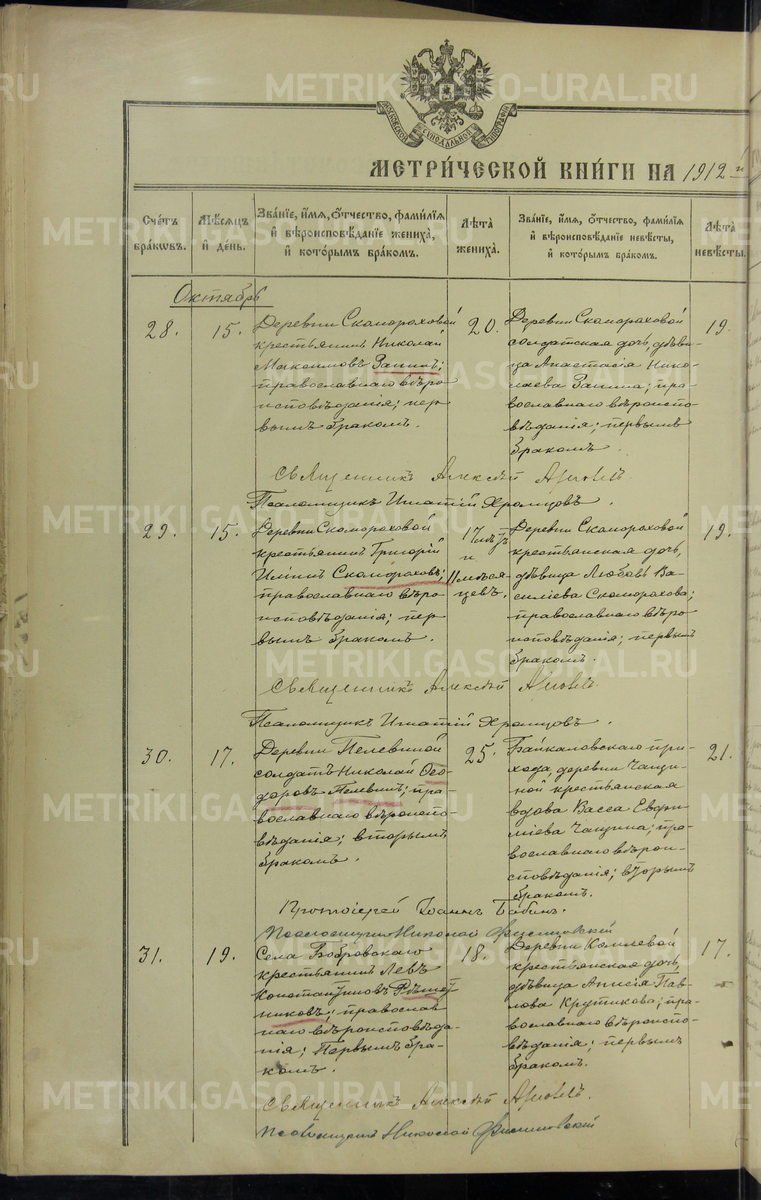 МОСКОВСКОЙ СѴНОДАЛЬНОЙ ТИПОГРАФІИ
МЕТРИ́ЧЕСКОЙ КНИ́ГИ НА 1912 й
Сче́тъ бра́ковъ.
Мѣ́сяцъ и́ де́нь.
Зва́ніе, и́мя, о́тчество, фами́лія и́ вѣроисповѣ́даніе жениха̀, и́ кото́рымъ бра́комъ.
Лѣ́та жениха̀.
Зва́ніе, и́мя, о́тчество, фами́лія и́ вѣроисповѣ́даніе невѣ́сты, и́ кото́рымъ бра́комъ.
Лѣ́та невѣ́сты.
Октябрь
28.
15.
Деревни Скомороховой
крестьянинъ Николай
Максимовъ Заминъ;
православнаго вѣро
исповѣданія; пер
вымъ бракомъ.
20.
Деревни Скомороховой
солдатская дочь, дѣви
ца Анастасія Нико
лаева Замина; пра-
вославнаго вѣроиспо
вѣданія; первымъ
бракомъ.
19.
Священникъ Алексѣй
Псаломщикъ Игнатій Храмцовъ.
29.
15.
Деревни Скомороховой
крестьянинъ Григорій
Скомороховъ;
православнаго вѣро
исповѣданія; пер
вымъ бракомъ.
17 лѣтъ
и
11 мѣся
цевъ.
Деревни Скомороховой
крестьянская дочь,
дѣвица Любовь Ва-
сильева Скоморохова;
православнаго вѣро
исповѣданія; первымъ
бракомъ.
19.
Священникъ Алексѣй
Псаломщикъ Игнатій Храмцовъ.
30.
17.
Деревни Пелевиной
солдатъ Николай Ѳео-
доровъ Пелевинъ; пра-
вославнаго вѣроиспо-
вѣданія; вторымъ
бракомъ.
25.
Байкаловскаго при-
хода, деревни Чащи-
ной крестьянская
вдова Васса Евфи-
міева Чащина; пра-
вославнаго вѣроис-
повѣданія; вторымъ
бракомъ.
21.
Протоіерей Іоаннъ Бабинъ.
Псаломщикъ Николай
31.
19.
Села Бобровскаго
крестьянинъ Левъ
Константиновъ Рѣшет
никовъ; православ
наго вѣроисповѣда-
нія; Первымъ бра-
комъ.
18.
Деревни Комлевой
крестьянская дочь,
дѣвица Анисія Пав-
лова Крутикова; пра-
вославнаго вѣроиспо-
вѣданія; первымъ
бракомъ.
17.
Священникъ Алексѣй
Псаломщикъ Николай
METRIKI.GASO-URAL.RU
METRIKI.GASO-URAL.RU
METRIKI.GASO-URAL.RU
METRIKI.GASO-URAL.RU
METRIKI.GASO-URAL.RU
METRIKI.GASO-URAL.RU
METRIKI.GASO-URAL.RU
METRIKI.GASO-URAL.RU